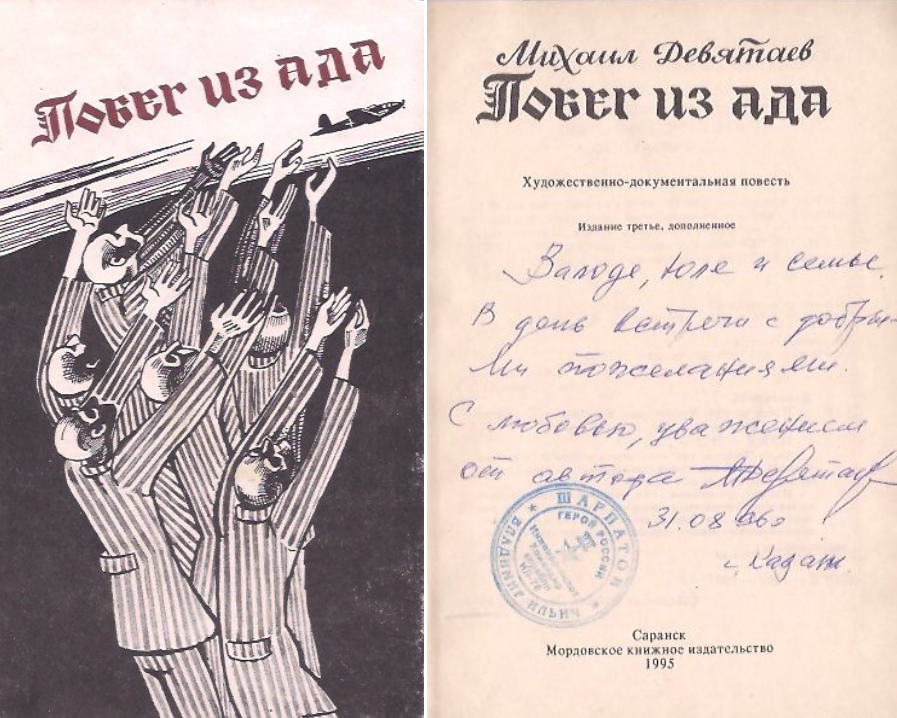 Побег из ада
Михаил Девятаев
Побег из ада
Художественно-документальная повесть
Издание третье, дополненное
Валоде, Юле и семье.
В день встречи с добры-
ми пожеланиями.
С любовью, уважением
от автора МДевятаев
31.08.96г
г. Казань.
ШАРПАТОВ
ВЛАДИМИР ИЛЬИЧ
ГЕРОЙ РОССИИ
Саранск
Мордовское книжное издательство
1995